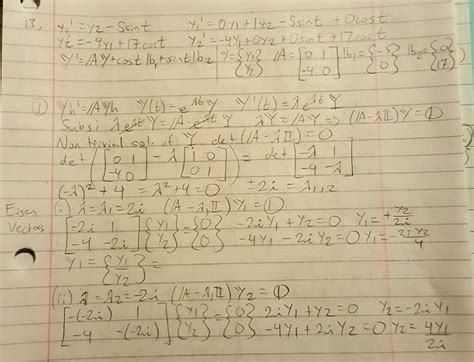 13. y₁' = y₂ - 5sint    y₁' = 0y₁ + 1y₂ - 5sint + 0cost
y₂' = -4y₁ + 17cost    y₂' = -4y₁ + 0y₂ + 0sint + 17cost
Y' = AY + cost b₁ + sint b₂    Y = {y₁ y₂}    A = [0 1 -4 0]    b₁ = {-5 0}    b₂ = {0 17}
① Yh' = AYh    Y(t) = e^λt Y    Y'(t) = λe^λt Y
Subsi λe^λt Y = A·e^λt Y    λY = AY => (A - λII)Y = 0
Non trivial sol. of Y    det(A - λII) = 0
det([0 1 -4 0] - λ[1 0 0 1]) = det[-λ 1 -4 -λ]
(-λ)² + 4 = λ² + 4 = 0    ±2i = λ₁,₂
Eigen Vectors (i) λ = λ₁ = 2i    (A - λ₁II)Y₁ = 0
[-2i 1 -4 -2i]{y₁ y₂} = {0 0}    -2iy₁ + y₂ = 0    y₁ = +y₂/2i
-4y₁ - 2iy₂ = 0    y₁ = -2iy₂/4
Y₁ = {y₁ y₂} =
(ii) λ = λ₂ = -2i    (A - λ₂II)Y₂ = 0
[-(-2i) 1 -4 -(-2i)]{y₁ y₂} = {0 0}    2iy₁ + y₂ = 0    y₂ = -2iy₁
-4y₁ + 2iy₂ = 0    y₂ = 4y₁/2i